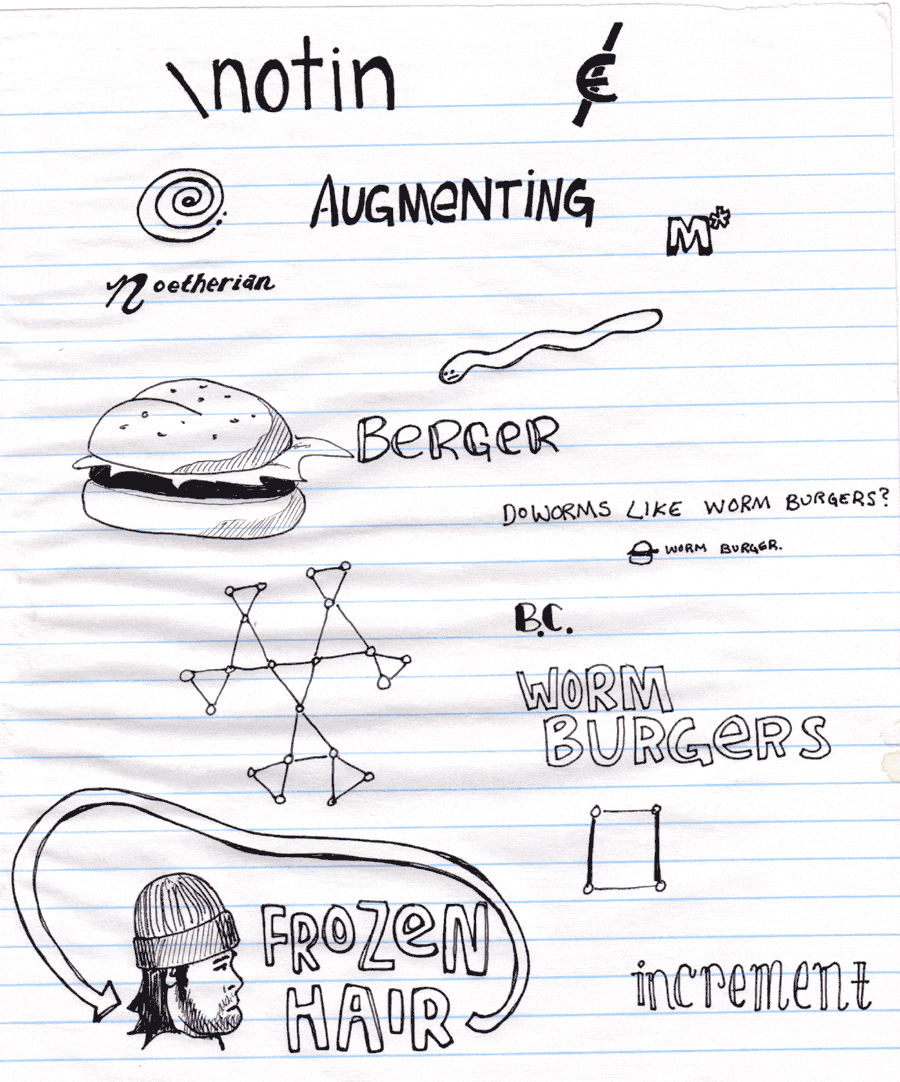 \notin
∉
AUGMENTING
M*
Noetherian
BERGER
DO WORMS LIKE WORM BURGERS?
WORM BURGER.
B.C.
WORM
BURGERS
FROZEN
HAIR
increment